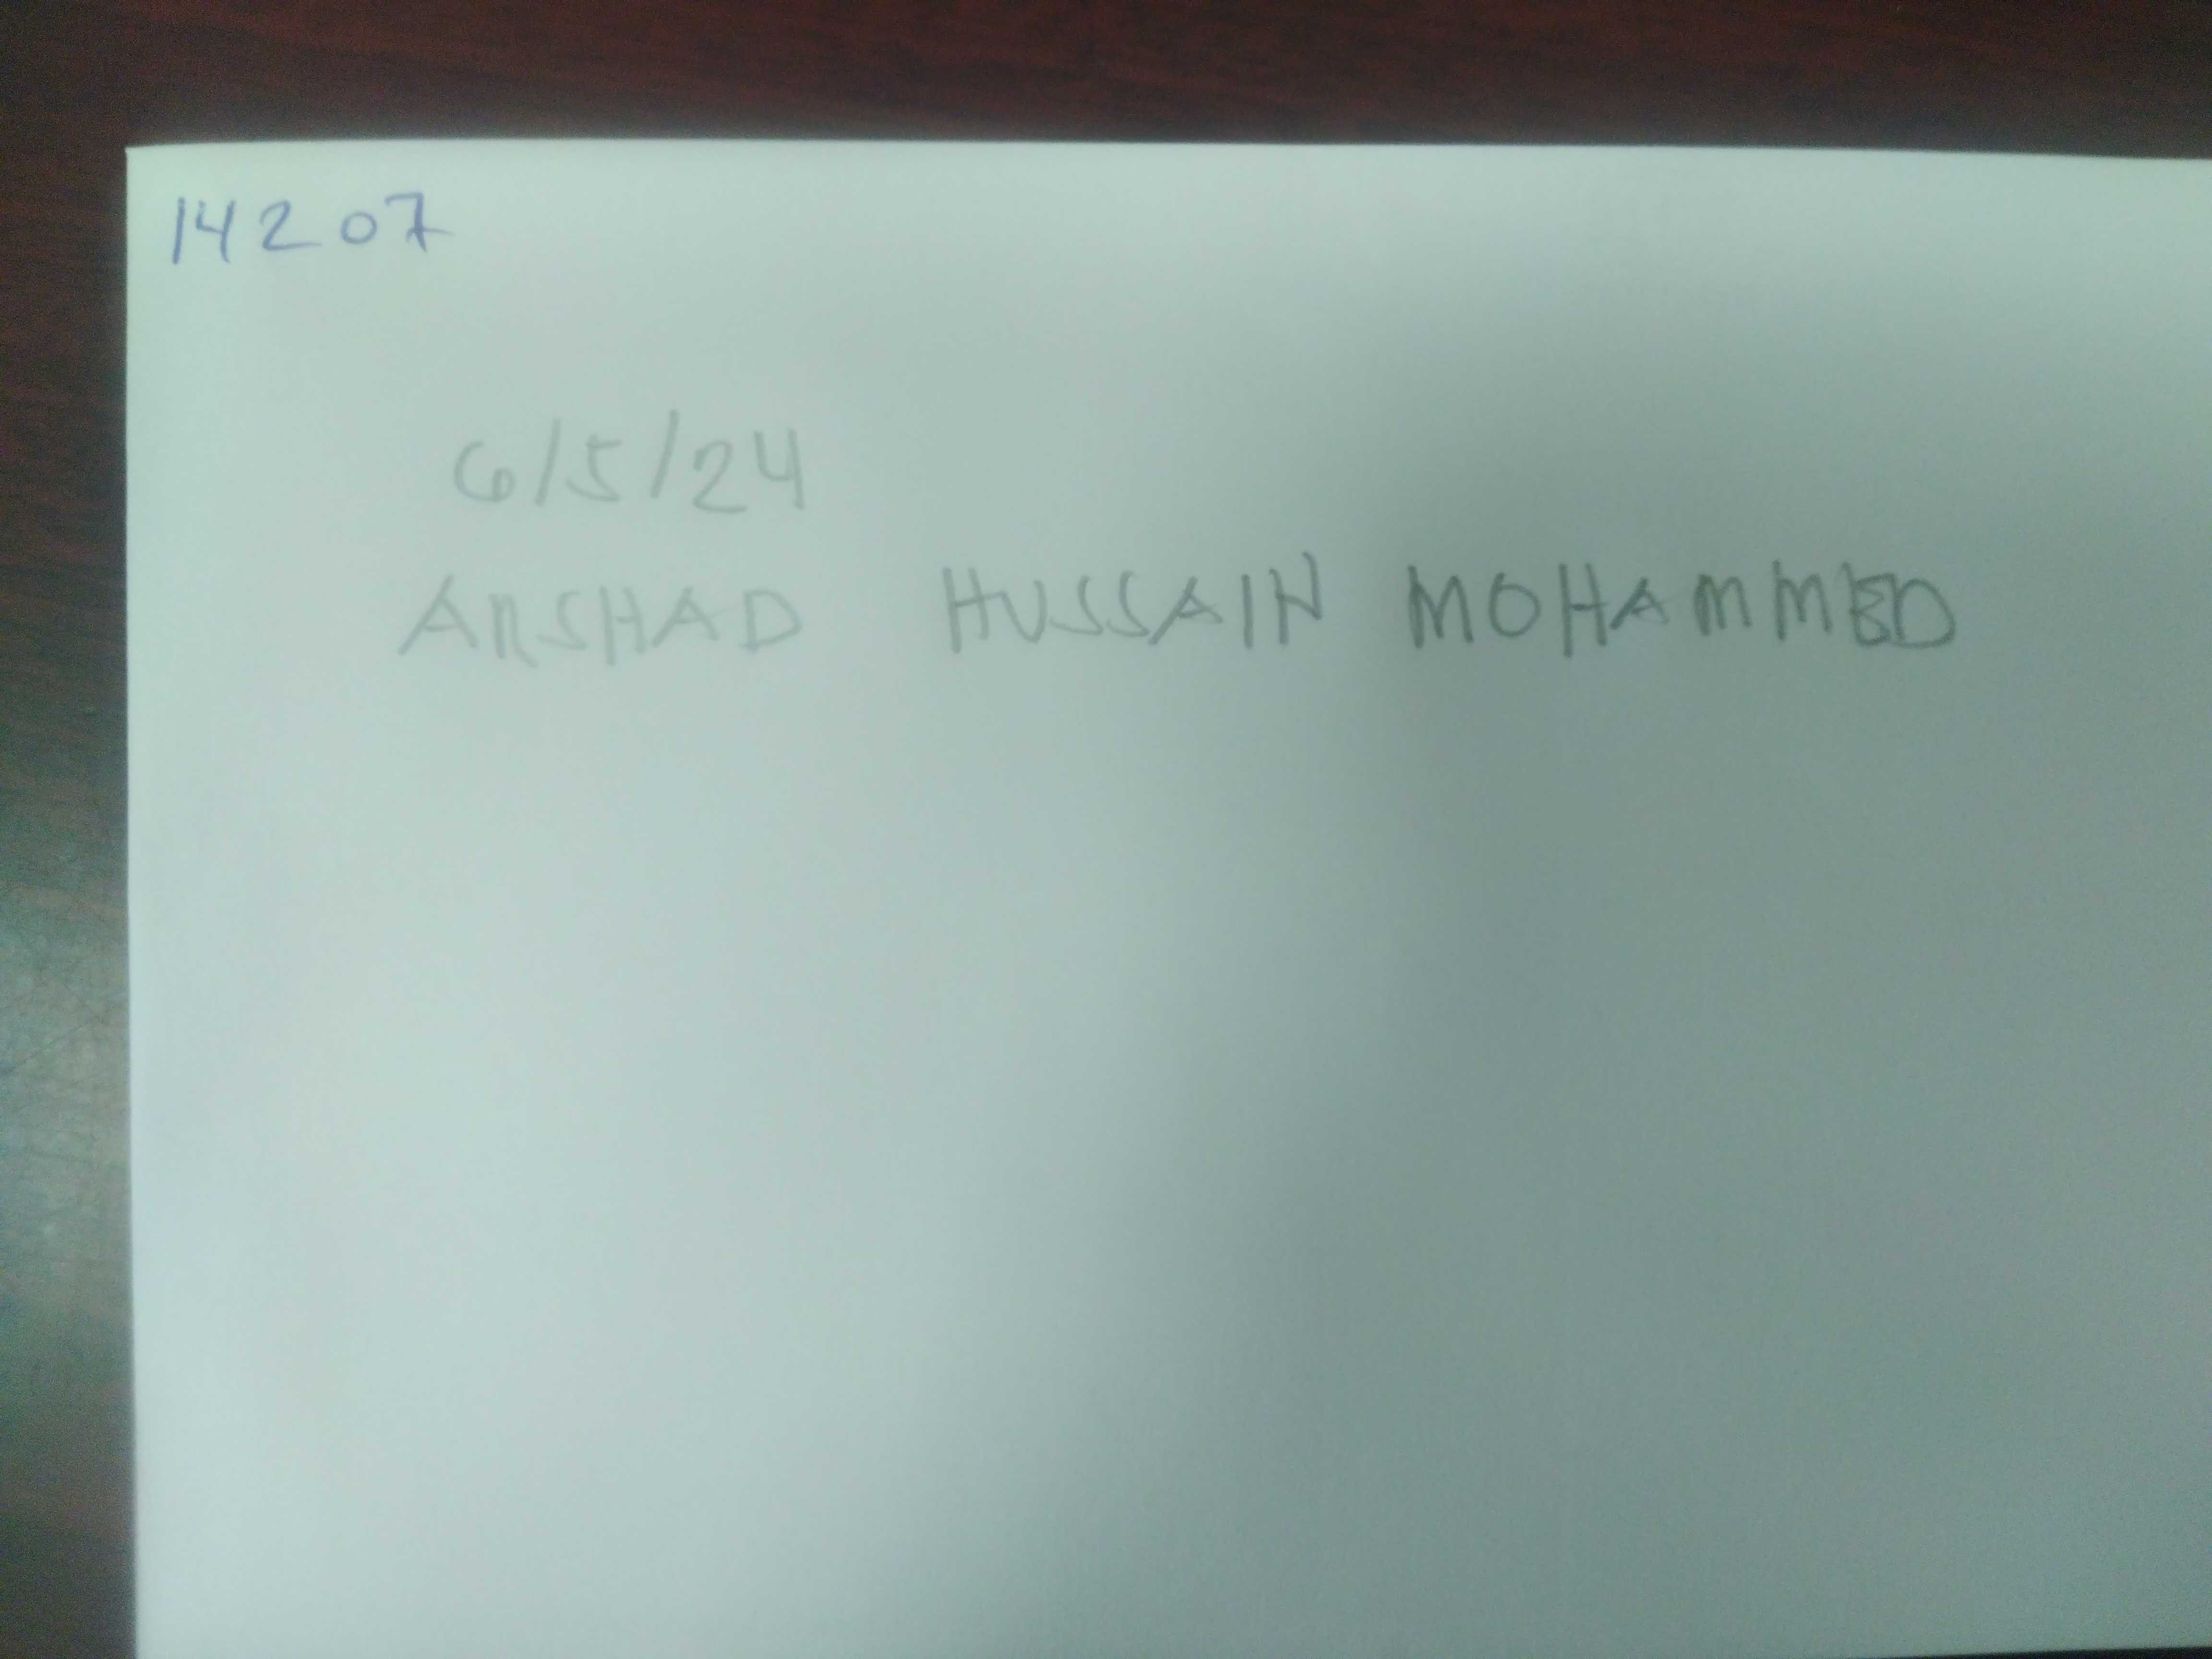 14207
6/5/24
ARSHAD HUSSAIN MOHAMMED